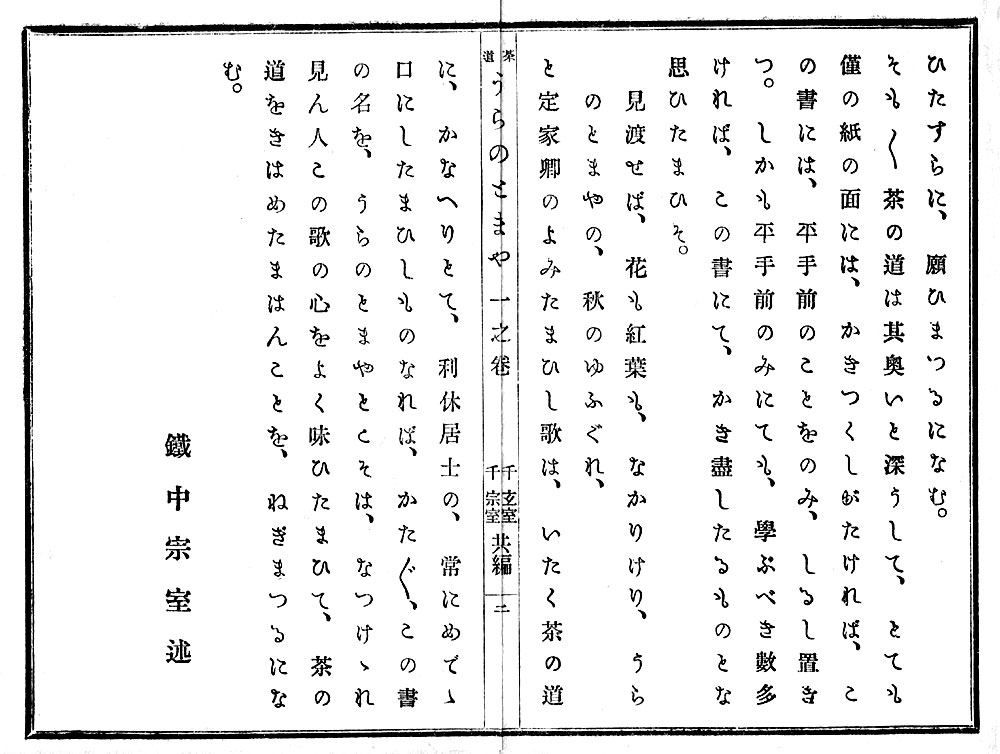 ひたすらに、願ひまつるになむ。
そも〱茶の道は其奥いと深うして、とても
僅の紙の面には、かきつくしがたければ、こ
の書には、平手前のことをのみ、しるし置き
つ。しかも平手前のみにても、學ぶべき數多
ければ、この書にて、かき盡したるものとな
思ひたまひそ。
見渡せば、花も紅葉も、なかりけり、うら
のとまやの、秋のゆふぐれ、
と定家卿のよみたまひし歌は、いたく茶の道
茶道うらのとまや 一之卷 千玄室 千宗室 共編 二
に、かなへりとて、利休居士の、常にめでゝ
口にしたまひしものなれば、かた〲、この書
の名を、うらのとまやとこそは、なつけゝれ
見ん人この歌の心をよく味ひたまひて、茶の
道をきはめたまはんことを、ねぎまつるにな
む。
鐵中宗室述